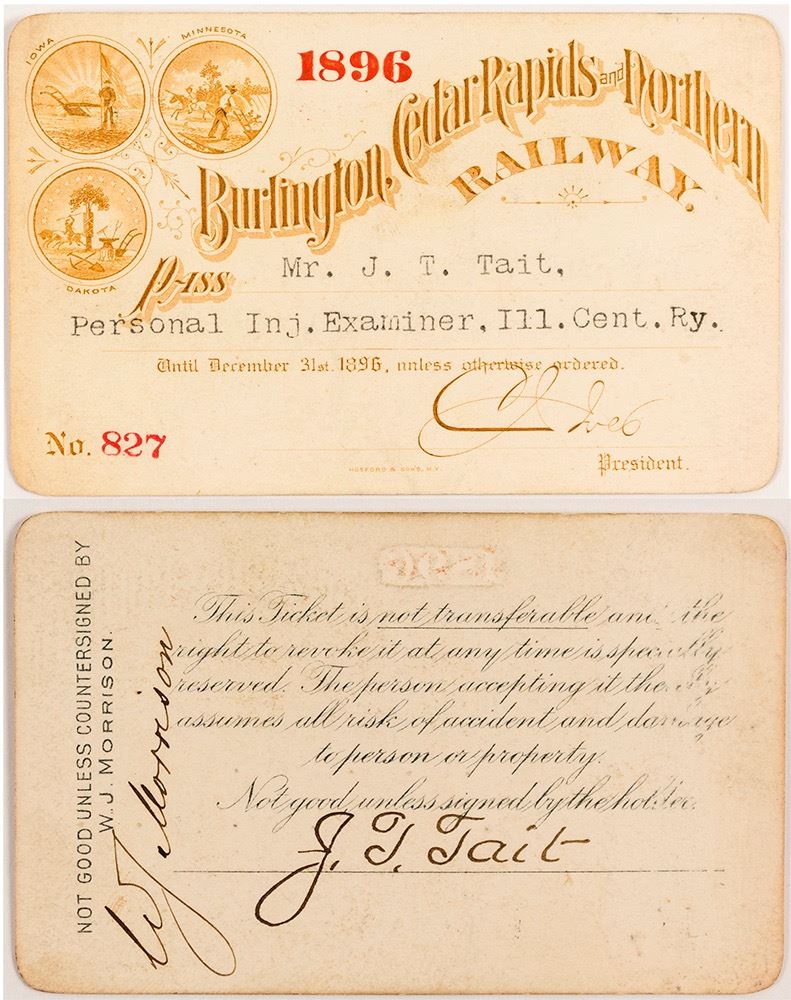 IOWA
MINNESOTA
DAKOTA
1896
Burlington, Cedar Rapids and Northern
RAILWAY.
PASS Mr. J. T. Tait,
Personal Inj. Examiner, Ill. Cent. Ry.
Until December 31st. 1896, unless otherwise ordered.
C J Ives
No. 827
President.
HOSFORD & SONS, N.Y.
NOT GOOD UNLESS COUNTERSIGNED BY
W. J. MORRISON.
W J Morrison
1896
This Ticket is not transferable and the
right to revoke it at any time is specially
reserved. The person accepting it thereby
assumes all risk of accident and damage
to person or property.
Not good unless signed by the holder.
J. T. Tait